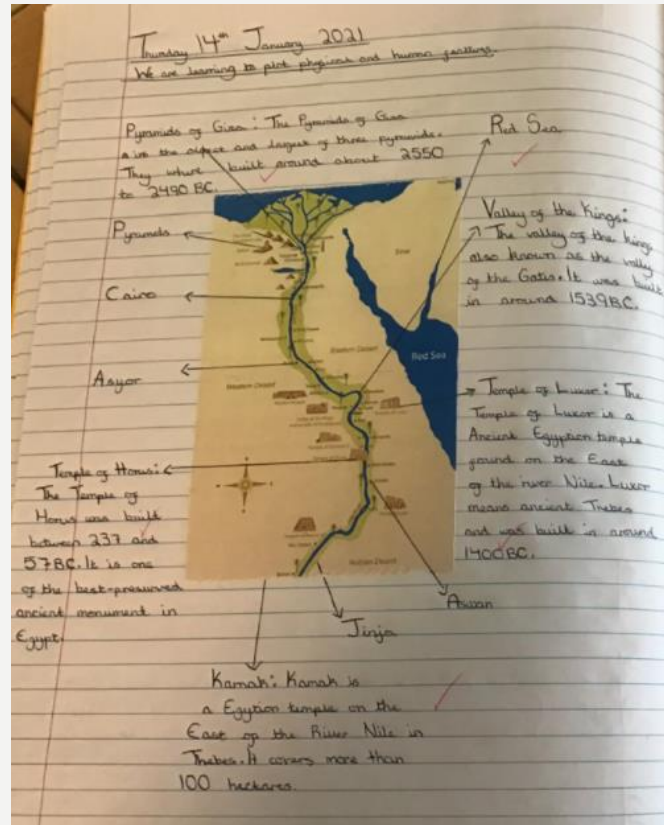 Thursday 14th January 2021
We are learning to plot physical and human features.
Pyramids of Giza: The Pyramids of Giza
is the oldest and largest of three pyramids.
They where built around about 2550
to 2490 BC.
Red Sea
Pyramids
Cairo
Asyor
Valley of the Kings:
The valley of the kings
also known as the valley
of the Gates. It was built
in around 1539BC.
Sinai
Red Sea
Eastern Desert
Western Desert
Temple of Luxor: The
Temple of Luxor is a
Ancient Egyption temple
found on the East
of the river Nile. Luxor
means ancient Thebes
and was built in around
1400BC.
Temple of Horus:
The Temple of
Horus was built
between 237 and
57BC. It is one
of the best-preserved
ancient monument in
Egypt.
Nubian Desert
Aswan
Jinja
Karnak: Karnak is
a Egytion temple on the
East of the River Nile in
Thebes. It covers more than
100 hectares.